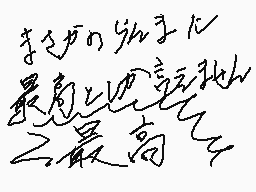 まさかのらんまに
最高としか言えません
最高